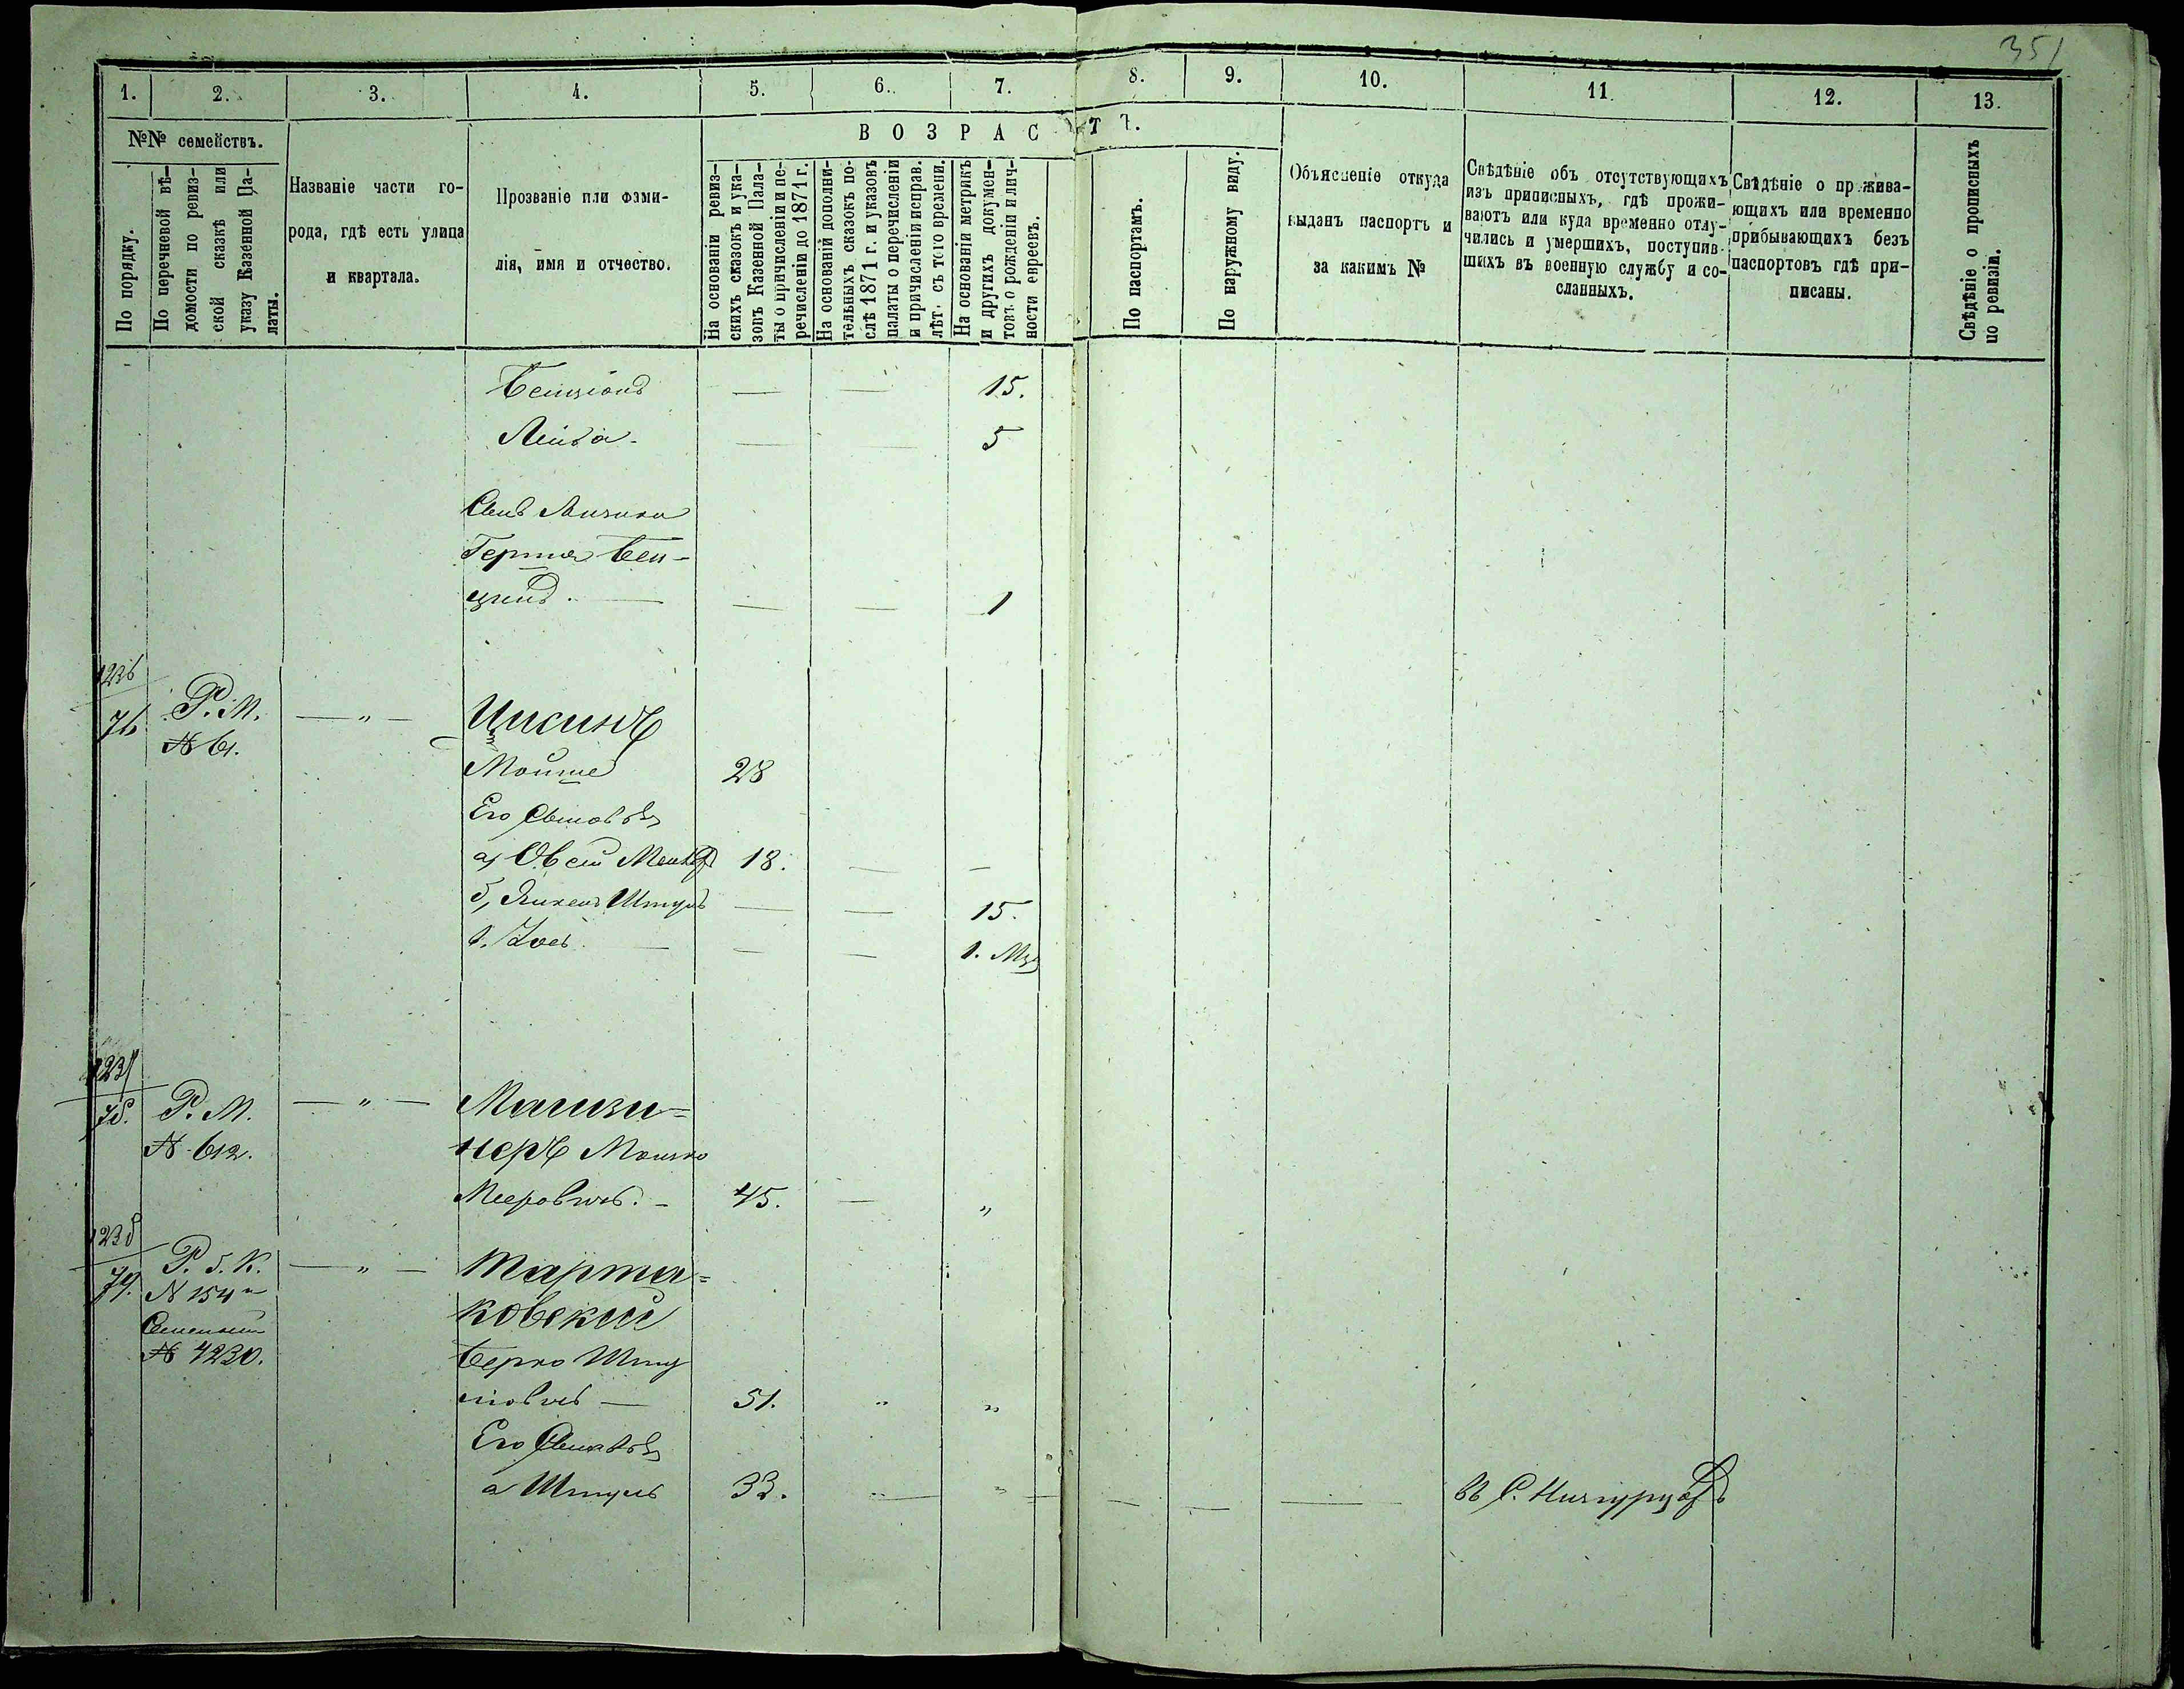 351
1. 2. 3. 4. 5. 6. 7. 8. 9. 10. 11. 12. 13.
№№ семействъ.
По порядку.
По перечневой вѣ-
домости по ревиз-
ской сказкѣ или
указу Казенной Па-
латы.
Названіе части го-
рода, гдѣ есть улица
и квартала.
Прозваніе или фами-
лія, имя и отчество.
ВОЗРАСТЪ.
На основаніи ревиз-
скихъ сказокъ и ука-
зовъ Казенной Пала-
ты о причисленіи и пе-
речисленіи до 1871 г.
На основаній дополни-
тельныхъ сказокъ по-
слѣ 1871 г. и указовъ
палаты о перечисленіи
и причисленіи исправ.
лѣт. съ того времени.
На основаніи метрикъ
и другихъ докумен-
товъ о рожденіи и лич-
ности евреевъ.
По паспортамъ.
По наружному виду.
Объясненіе откуда
выданъ паспортъ и
за какимъ №
Свѣдѣніе объ отсутствующихъ
изъ приписныхъ, гдѣ прожи-
ваютъ или куда временно отлу-
чились и умершихъ, поступив-
шихъ въ военную службу и со-
сланныхъ.
Свѣдѣніе о прожива-
ющихъ или временно
прибывающихъ безъ
паспортовъ гдѣ при-
писаны.
Свѣдѣніе о прописныхъ
по ревизіи.
Бенціонъ — — 15.
Лейба — — 5
Сынъ
Гершъ Бен-
ціонъ — — 1
1236
76 Р. М. — „ — Цисинъ
№ 61.
Мошко 28
Его Сыновья
а, Овсей 18. — —
б, Янкель Шмуль — — 15.
в. — — 1. Мѣс
1237
78. Р. М. — „ — Магизи=
№ 612. неръ Мошко
Мееровичъ. 45. — „
1238
79. Р. Б. К. — „ — Тарта=
№ 154 ковскій
Семейный
№ 4230. Берко Шму
левичъ — 51. „ „
Его Сыновья
а Шмуль 33. „ „ — — — въ С.